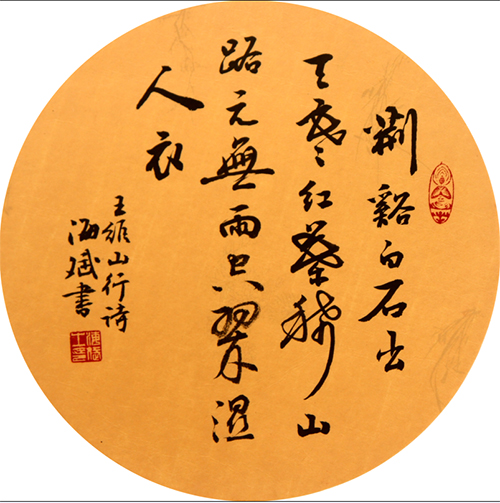 荆谿白石出
天寒紅葉稀山
路元無雨空翠湿
人衣
王維山行詩
海斌書